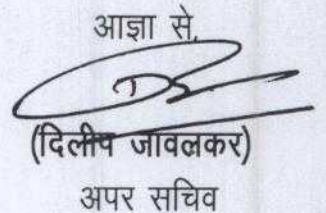 आज्ञा से,
(दिलीप जावलकर)
अपर सचिव